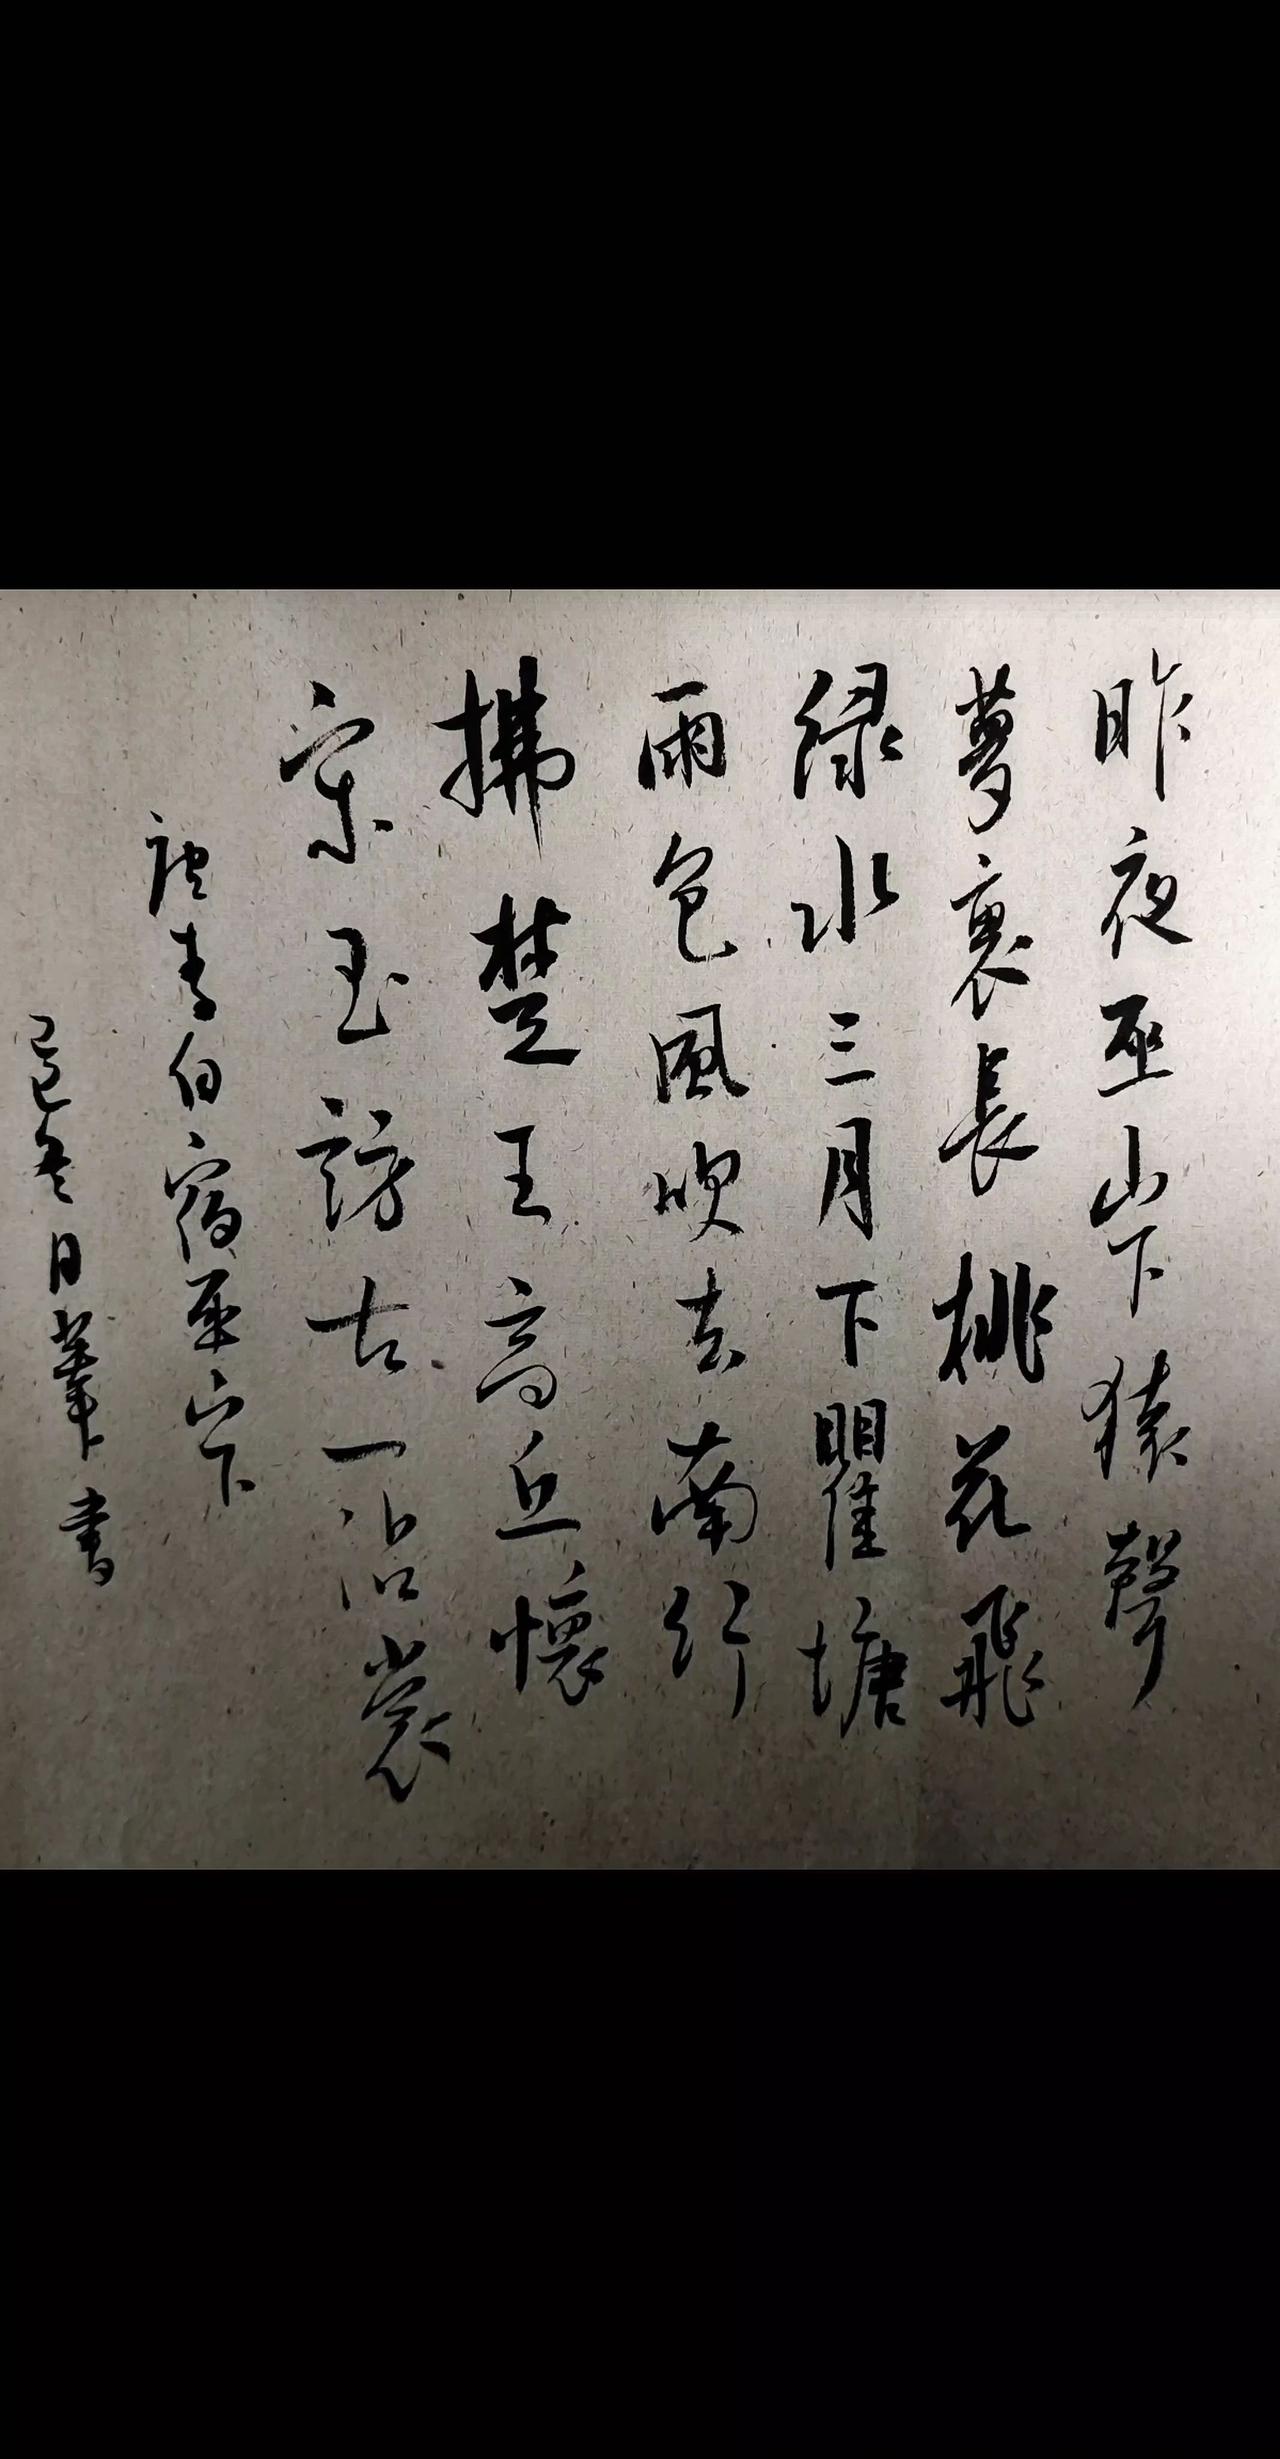 昨夜巫山下猿聲
夢裏長桃花飛
緑水三月下瞿塘
雨色風吹去南行
拂楚王高丘懷
宋玉訪古一沾裳
唐李白宿巫山下
巳冬日書